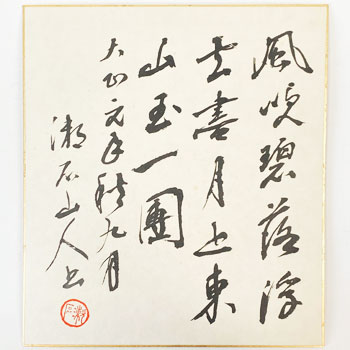 風吹碧落浮
雲盡月上東
山玉一團
大正元年秋九月
漱石山人書